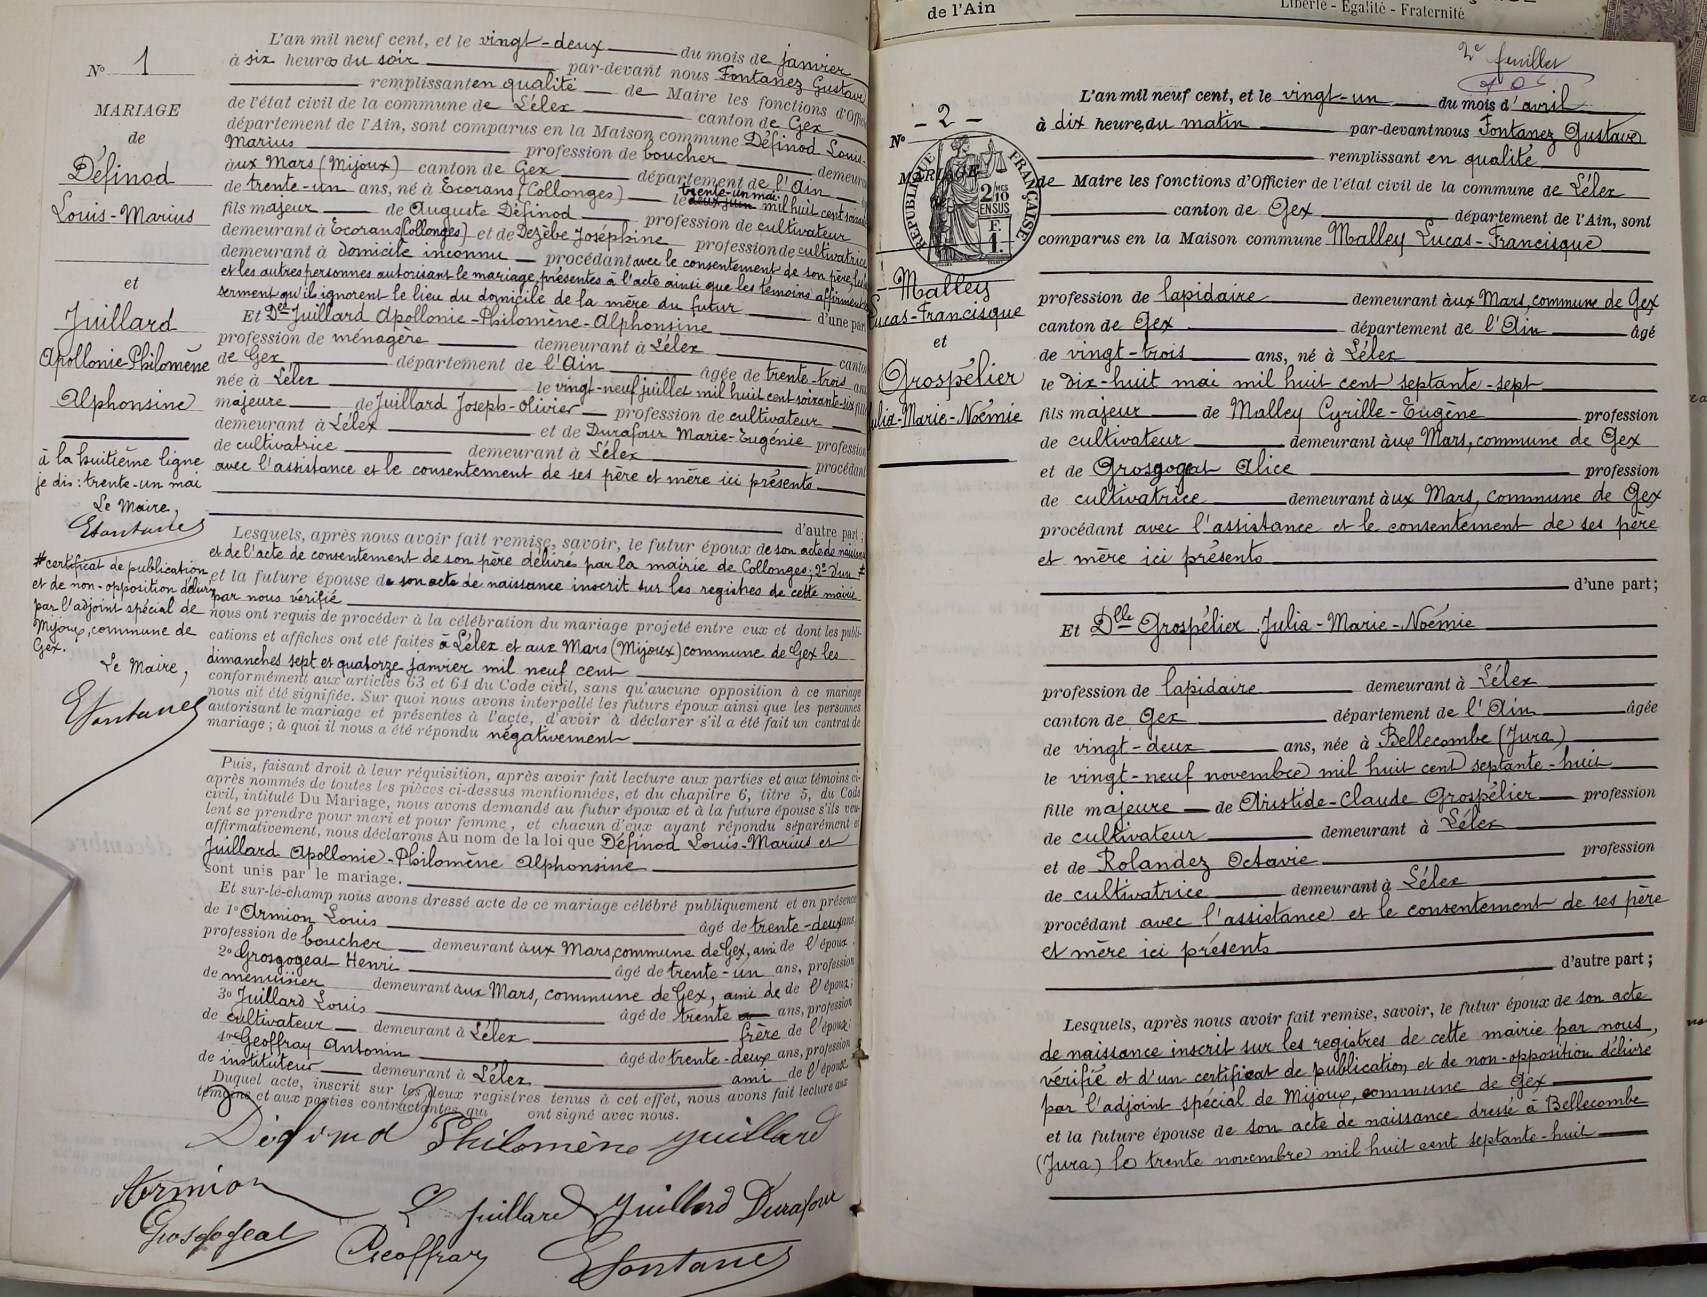 N° 1
MARIAGE
de
Définod
Louis-Marius
et
Juillard
Apollonie-Philomène
Alphonsine
à la huitième ligne
je dis : trente-un mai
Le Maire,
GFontanez
# certificat de publication
et de non-opposition délivré
par l'adjoint spécial de
Mijoux, commune de
Gex.
Le Maire,
GFontanez
L'an mil neuf cent, et le vingt-deux du mois de janvier
à six heures du soir par-devant nous Fontanez Gustave
remplissant en qualité de Maire les fonctions d'Offici
de l'état civil de la commune de Lélex canton de Gex
département de l'Ain, sont comparus en la Maison commune Définod Louis-
Marius profession de boucher demeura
aux Mars (Mijoux) canton de Gex département de l'Ain
de trente-un ans, né à Ecorans (Collonges) le deux juin trente-un mai mil huit cent
fils majeur de Auguste Définod profession de cultivateur
demeurant à Ecorans (Collonges) et de Dezèbe Joséphine profession de cultivatrice
demeurant à domicile inconnu procédant avec le consentement de son père,
et les autres personnes autorisant le mariage, présentes à l'acte ainsi que les témoins affirment
serment qu'ils ignorent le lieu du domicile de la mère du futur d'une part
Et Dlle Juillard Apollonie-Philomène-Alphonsine
profession de ménagère demeurant à Lélex canton
de Gex département de l'Ain âgée de trente-trois ans
née à Lélex le vingt-neuf juillet mil huit cent soixante-six fille
majeure de Juillard Joseph-Olivier profession de cultivateur
demeurant à Lélex et de Durafour Marie-Eugénie profession
de cultivatrice demeurant à Lélex procédant
avec l'assistance et le consentement de ses père et mère ici présents
d'autre part ;
Lesquels, après nous avoir fait remise, savoir, le futur époux de son acte de naissance
et de l'acte de consentement de son père délivré par la mairie de Collonges ; 2° d'un #
et la future épouse de son acte de naissance inscrit sur les registres de cette mairie
par nous vérifié
nous ont requis de procéder à la célébration du mariage projeté entre eux et dont les publi-
cations et affiches ont été faites à Lélex et aux Mars (Mijoux) commune de Gex les
dimanches sept et quatorze janvier mil neuf cent
conformément aux articles 63 et 64 du Code civil, sans qu'aucune opposition à ce mariage
nous ait été signifiée. Sur quoi nous avons interpellé les futurs époux ainsi que les personnes
autorisant le mariage et présentes à l'acte, d'avoir à déclarer s'il a été fait un contrat de
mariage ; à quoi il nous a été répondu négativement
Puis, faisant droit à leur réquisition, après avoir fait lecture aux parties et aux témoins ci-
après nommés de toutes les pièces ci-dessus mentionnées, et du chapitre 6, titre 5, du Code
civil, intitulé Du Mariage, nous avons demandé au futur époux et à la future épouse s'ils veu-
lent se prendre pour mari et pour femme, et chacun d'eux ayant répondu séparément et
affirmativement, nous déclarons Au nom de la loi que Définod Louis-Marius et
Juillard Apollonie-Philomène Alphonsine
sont unis par le mariage.
Et sur-le-champ nous avons dressé acte de ce mariage célébré publiquement et en présence
de 1° Armion Louis âgé de trente-deux ans
profession de boucher demeurant aux Mars, commune de Gex, ami de l'époux.
2° Grosgogeat Henri âgé de trente-un ans, profession
de menuisier demeurant aux Mars, commune de Gex, ami de de l'époux ;
3° Juillard Louis âgé de trente ans, profession
de cultivateur demeurant à Lélex frère de l'épouse
4° Geoffray Antonin âgé de trente-deux ans, profession
de instituteur demeurant à Lélex ami de l'épouse
Duquel acte, inscrit sur les deux registres tenus à cet effet, nous avons fait lecture aux
témoins et aux parties contractantes qui ont signé avec nous.
Définod Philomène Juillard
Armion L Juillard Juillard Durafour
Grosgogeat Geoffray GFontanez
de l'Ain
Liberté - Egalité - Fraternité
2e feuillet
N° - 2 -
MARIAGE
RÉPUBLIQUE FRANÇAISE
2/10 MES
EN SUS
F.
1.
de
Malley
Lucas-Francisque
et
Grospélier
Julia-Marie-Noémie
L'an mil neuf cent, et le vingt-un du mois d'avril
à dix heures du matin par-devant nous Fontanez Gustave
remplissant en qualité
de Maire les fonctions d'Officier de l'état civil de la commune de Lélex
canton de Gex département de l'Ain, sont
comparus en la Maison commune Malley Lucas-Francisque
profession de lapidaire demeurant aux Mars, commune de Gex
canton de Gex département de l'Ain âgé
de vingt-trois ans, né à Lélex
le dix-huit mai mil huit cent septante-sept
fils majeur de Malley Cyrille-Eugène profession
de cultivateur demeurant aux Mars, commune de Gex
et de Grosgogeat Alice profession
de cultivatrice demeurant aux Mars, commune de Gex
procédant avec l'assistance et le consentement de ses père
et mère ici présents
d'une part ;
Et Dlle Grospélier Julia-Marie-Noémie
profession de lapidaire demeurant à Lélex
canton de Gex département de l'Ain âgée
de vingt-deux ans, née à Bellecombe (Jura)
le vingt-neuf novembre mil huit cent septante-huit
fille majeure de Aristide-Claude Grospélier profession
de cultivateur demeurant à Lélex
et de Rolandez Octavie profession
de cultivatrice demeurant à Lélex
procédant avec l'assistance et le consentement de ses père
et mère ici présents
d'autre part ;
Lesquels, après nous avoir fait remise, savoir, le futur époux de son acte
de naissance inscrit sur les registres de cette mairie par nous,
vérifié et d'un certificat de publication et de non-opposition délivré
par l'adjoint spécial de Mijoux, commune de Gex
et la future épouse de son acte de naissance dressé à Bellecombe
(Jura) le trente novembre mil huit cent septante-huit